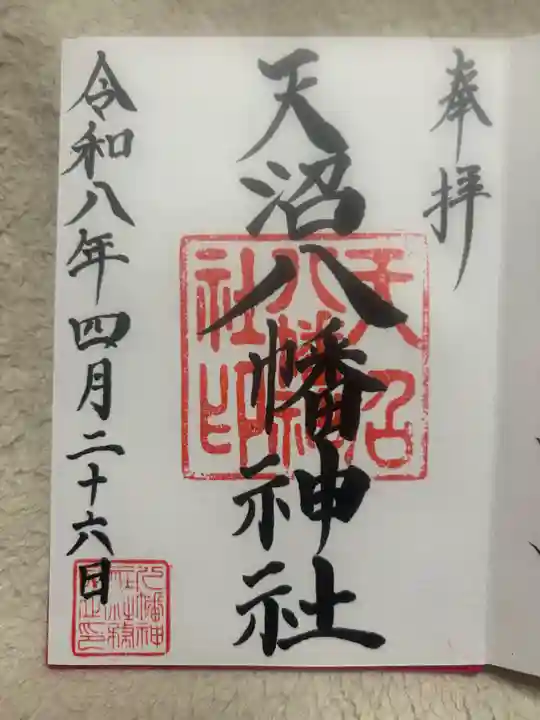 奉拝
天沼八幡神社
令和八年四月二十六日
天沼
八幡神
社印